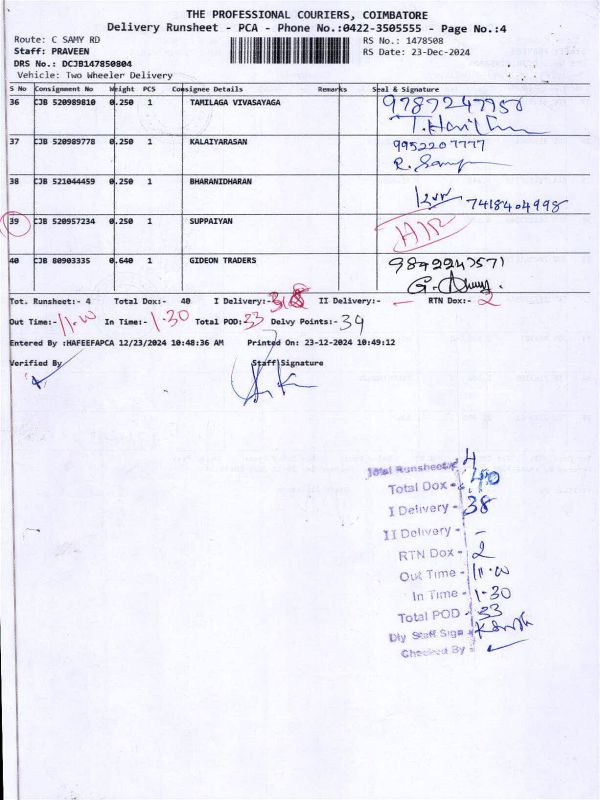 THE PROFESSIONAL COURIERS, COIMBATORE
Delivery Runsheet - PCA - Phone No.:0422-3505555 - Page No.:4
Route: C SAMY RD RS No.: 1478508
Staff: PRAVEEN RS Date: 23-Dec-2024
DRS No.: DCJB147850804
Vehicle: Two Wheeler Delivery
S No Consignment No Weight PCS Consignee Details Remarks Seal & Signature
36 CJB 520989810 0.250 1 TAMILAGA VIVASAYAGA 9787247950
37 CJB 520989778 0.250 1 KALAIYARASAN 9952207777
R.
38 CJB 521044459 0.250 1 BHARANIDHARAN 7418404998
39 CJB 520957234 0.250 1 SUPPAIYAN
40 CJB 80903335 0.640 1 GIDEON TRADERS 9842243571
Tot. Runsheet:- 4 Total Dox:- 40 I Delivery:- 38 II Delivery:- - RTN Dox:- 2
Out Time:- 11.00 In Time:- 1.30 Total POD:- 33 Delvy Points:- 34
Entered By :HAFEEFAPCA 12/23/2024 10:48:36 AM Printed On: 23-12-2024 10:49:12
Verified By Staff Signature
Total Runsheet - 4
Total Dox - 40
I Delivery - 38
II Delivery - -
RTN Dox - 2
Out Time - 11.00
In Time - 1.30
Total POD - 33
Dly Staff Sign -
Checked By -